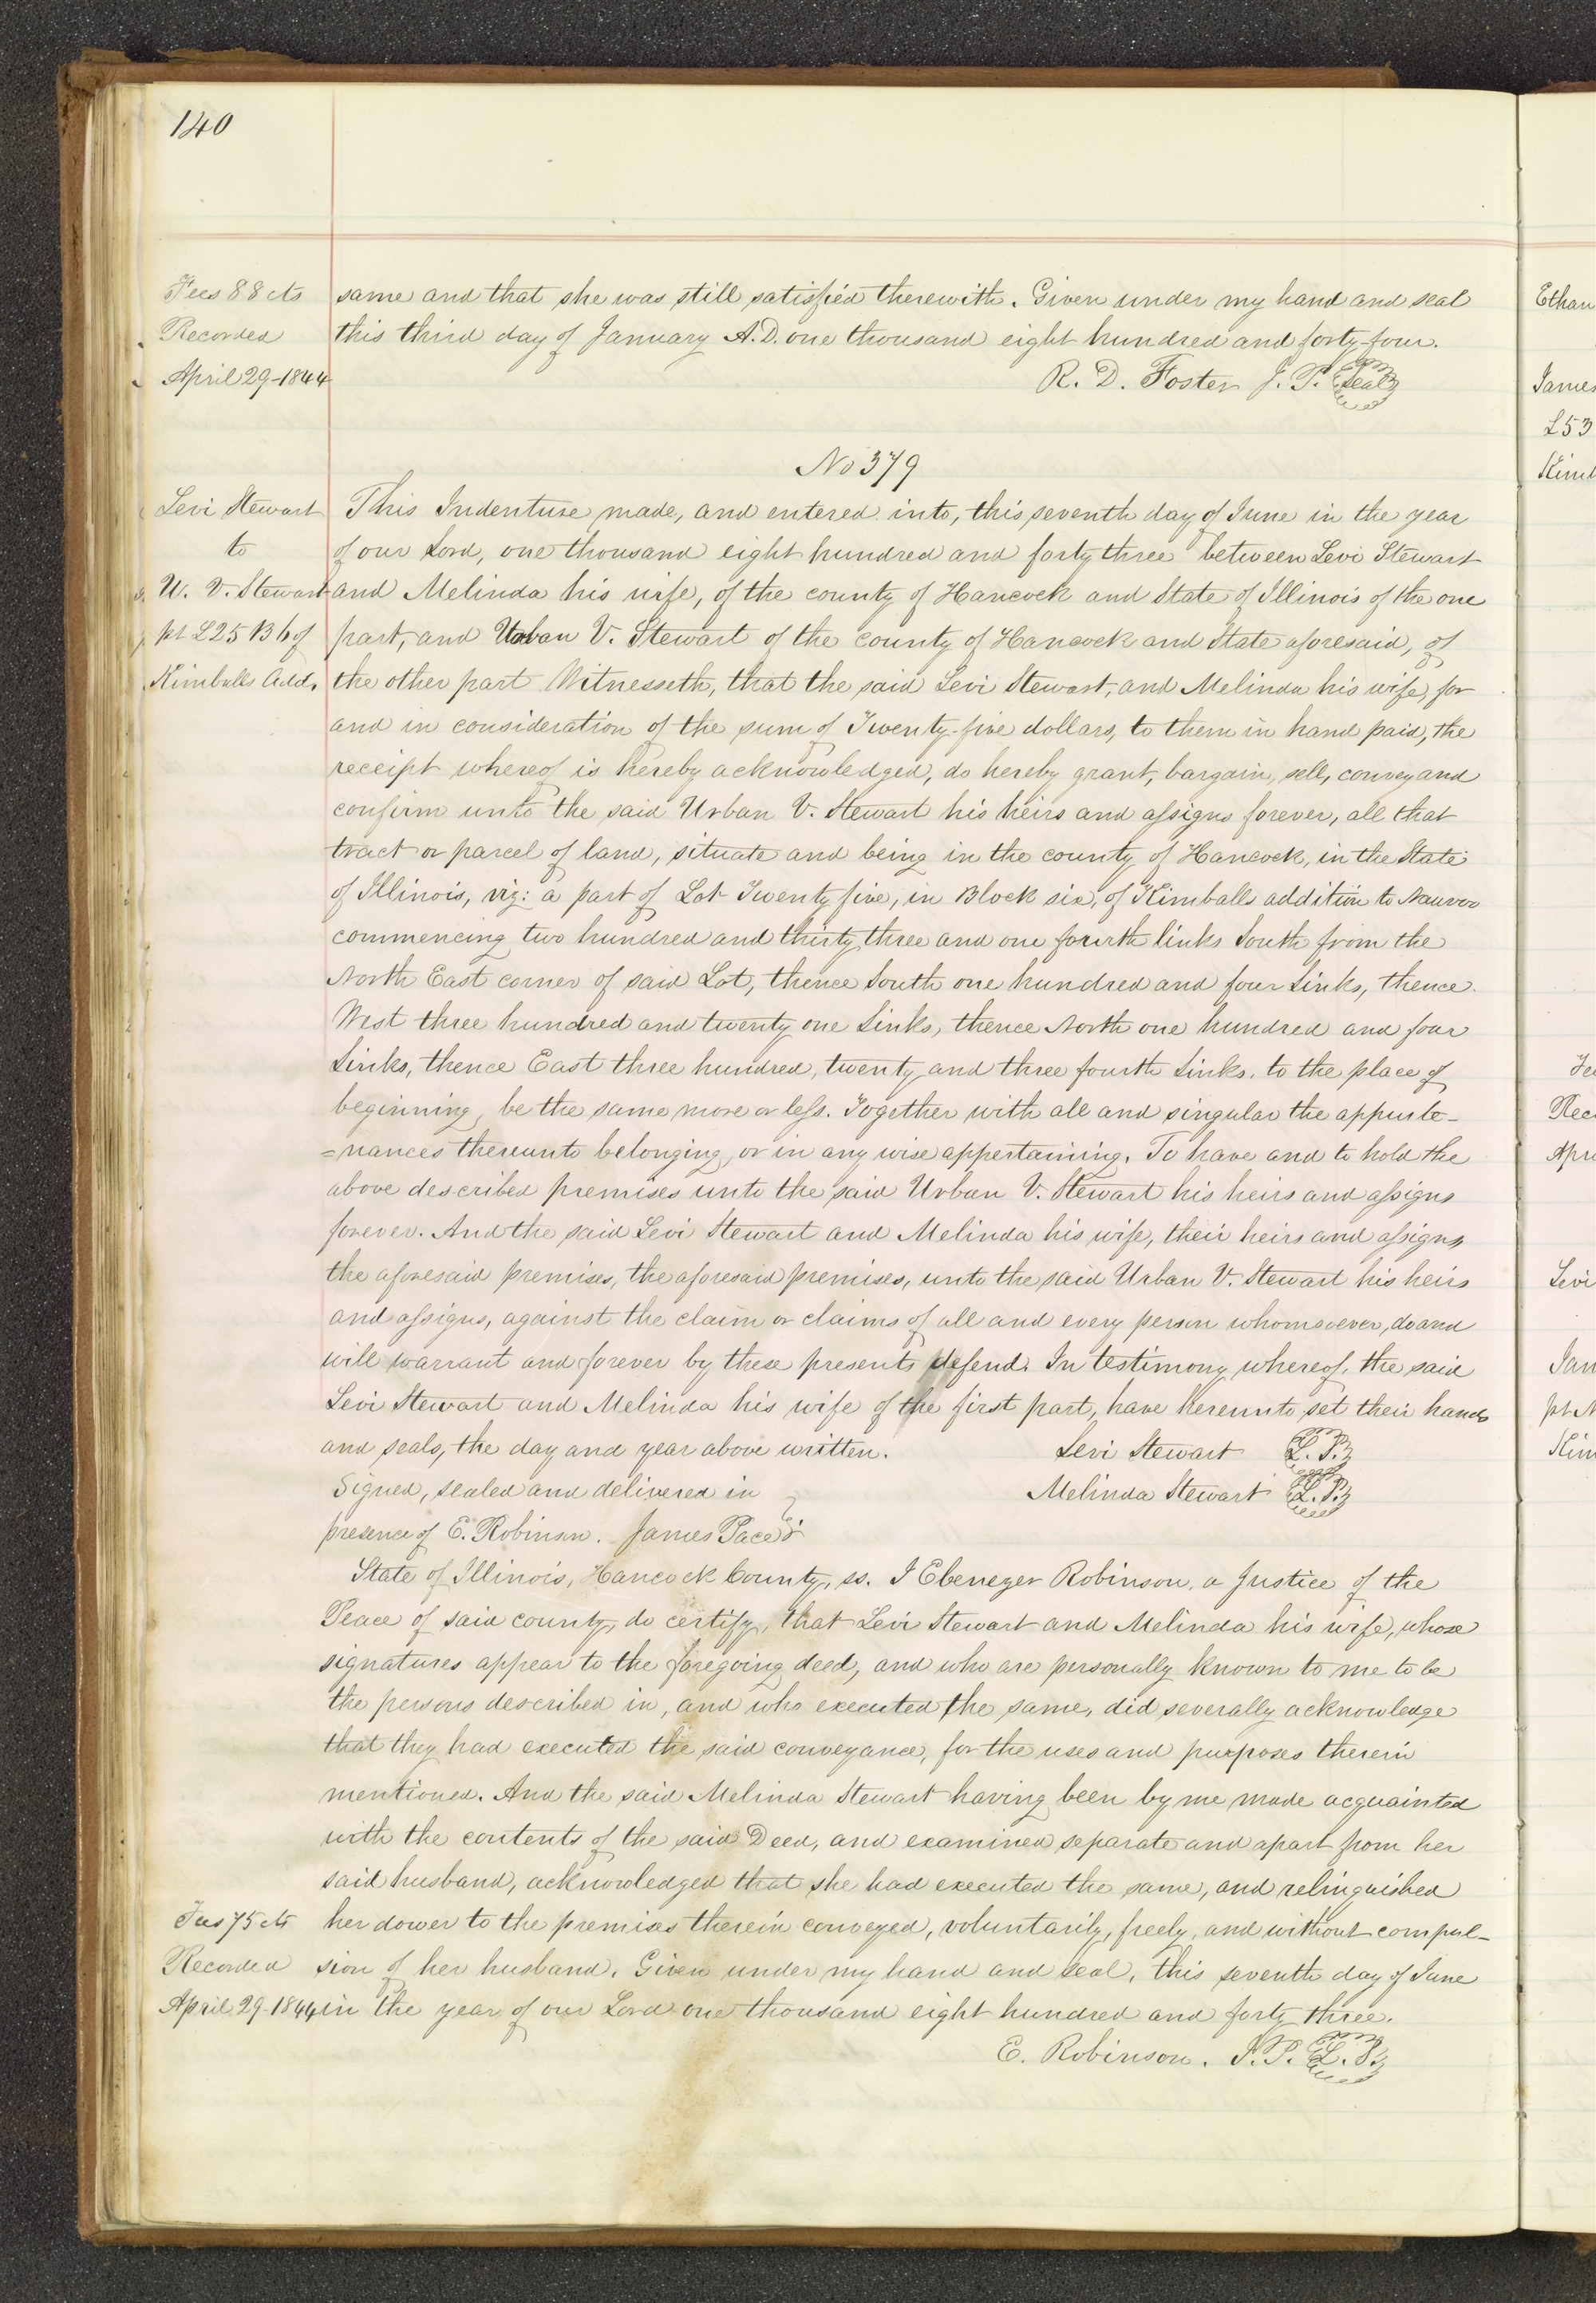 140
Fees 88 cts
Recorded
April 29-1844
same and that she was still satisfied therewith. Given under my hand and seal
this third day of January A.D. one thousand eight hundred and forty four.
R. D. Foster J. P. Seal
No 379
Levi Stewart
to
U. V. Stewart
pt L25 B 6 of
Kimballs Add.
This Indenture made, and entered into, this seventh day of June in the year
of our Lord, one thousand eight hundred and forty three between Levi Stewart
and Melinda his wife, of the county of Hancock and State of Illinois of the one
part, and Urban V. Stewart of the county of Hancock and State aforesaid, of
the other part Witnesseth, that the said Levi Stewart, and Melinda his wife, for
and in consideration of the sum of Twenty-five dollars, to them in hand paid, the
receipt whereof is hereby acknowledged, do hereby grant, bargain, sell, convey and
confirm unto the said Urban V. Stewart his heirs and assigns forever, all that
tract or parcel of land, situate and being in the county of Hancock, in the State
of Illinois, viz: a part of Lot Twenty five, in Block six, of Kimballs addition to Nauvoo
commencing two hundred and thirty three and one fourth links South from the
North East corner of said Lot, thence South one hundred and four Links, thence
West three hundred and twenty one Links, thence North one hundred and four
Links, thence East three hundred, twenty and three fourth Links, to the place of
beginning, be the same more or less. Together with all and singular the appurte-
=nances thereunto belonging, or in any wise appertaining. To have and to hold the
above described premises unto the said Urban V. Stewart his heirs and assigns
forever. And the said Levi Stewart and Melinda his wife, their heirs and assigns
the aforesaid premises, the aforesaid premises, unto the said Urban V. Stewart his heirs
and assigns, against the claim or claims of all and every person whomsoever, do and
will warrant and forever by these presents defend. In testimony whereof, the said
Levi Stewart and Melinda his wife of the first part, have hereunto set their hands
and seals, the day and year above written. Levi Stewart L. S.
Signed, sealed and delivered in Melinda Stewart L. S.
presence of E. Robinson. James Pace
State of Illinois, Hancock County, ss. I Ebenezer Robinson, a Justice of the
Peace of said county, do certify, that Levi Stewart and Melinda his wife, whose
signatures appear to the foregoing deed, and who are personally known to me to be
the persons described in, and who executed the same, did severally acknowledge
that they had executed the said conveyance, for the uses and purposes therein
mentioned. And the said Melinda Stewart having been by me made acquainted
with the contents of the said Deed, and examined separate and apart from her
said husband, acknowledged that she had executed the same, and relinquished
her dower to the premises therein conveyed, voluntarily, freely, and without compul-
sion of her husband. Given under my hand and seal, this seventh day of June
in the year of our Lord one thousand eight hundred and forty three.
Fees 75 cts
Recorded
April 29-1844
E. Robinson. J. P. L. S.
Ethan
James
L53
Kimb
Fe
Rec
Apri
Levi
Jam
pt N
Kim